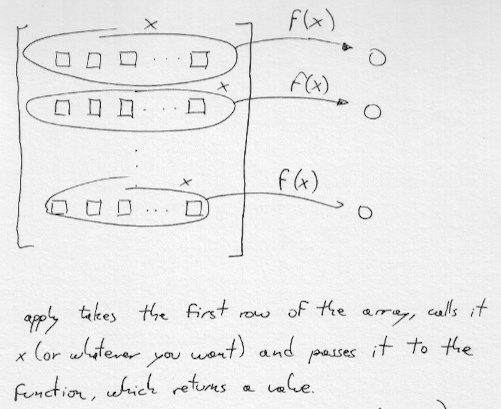 x
f(x)
x
f(x)
x
f(x)
apply takes the first row of the array, calls it
x (or whatever you want) and passes it to the
function, which returns a value.